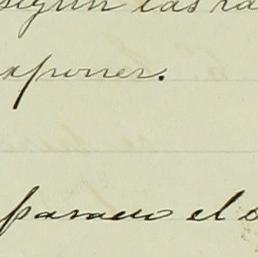 según las ra
xponer.
parado el